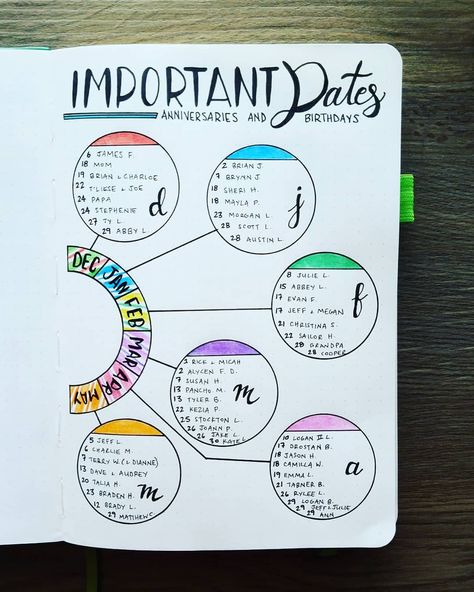 IMPORTANT Dates
ANNIVERSARIES AND BIRTHDAYS
DEC
JAN
FEB
MAR
APR
MAY
6 JAMES F.
18 MOM
19 BRIAN & CHARLOE
22 T'LIESE & JOE
24 PAPA
24 STEPHENIE
27 TY L.
29 ABBY L.
d
2 BRIAN J.
7 BRYNN J.
18 SHERI H.
18 MAYLA P.
23 MORGAN L.
28 SCOTT L.
28 AUSTIN L.
j
8 JULIE L.
15 ABBEY L.
17 EVAN F.
17 JEFF & MEGAN
21 CHRISTINA S.
22 SAILOR H.
28 GRANDPA
28 COOPER
f
1 RICE & MICAH
2 ALYCEN F. D.
7 SUSAN H.
13 PANCHO M.
13 TYLER B.
22 KEZIA P.
25 STOCKTON L.
26 JOANN P.
26 JAKE L.
30 KATE L.
m
10 LOGAN II L.
17 DROSTAN B.
18 JASON H.
18 CAMILLA W.
19 EMMA L.
21 TABNER B.
26 RYLEE L.
29 LOGAN B.
29 JEFF & JULIE
29 ANN
a
5 JEFF L.
6 CHARLIE M.
7 TERRY W. (& DIANNE)
13 DAVE & AUDREY
20 TALIA H.
23 BRADEN H.
12 BRADY L.
29 MATTHEW C.
m